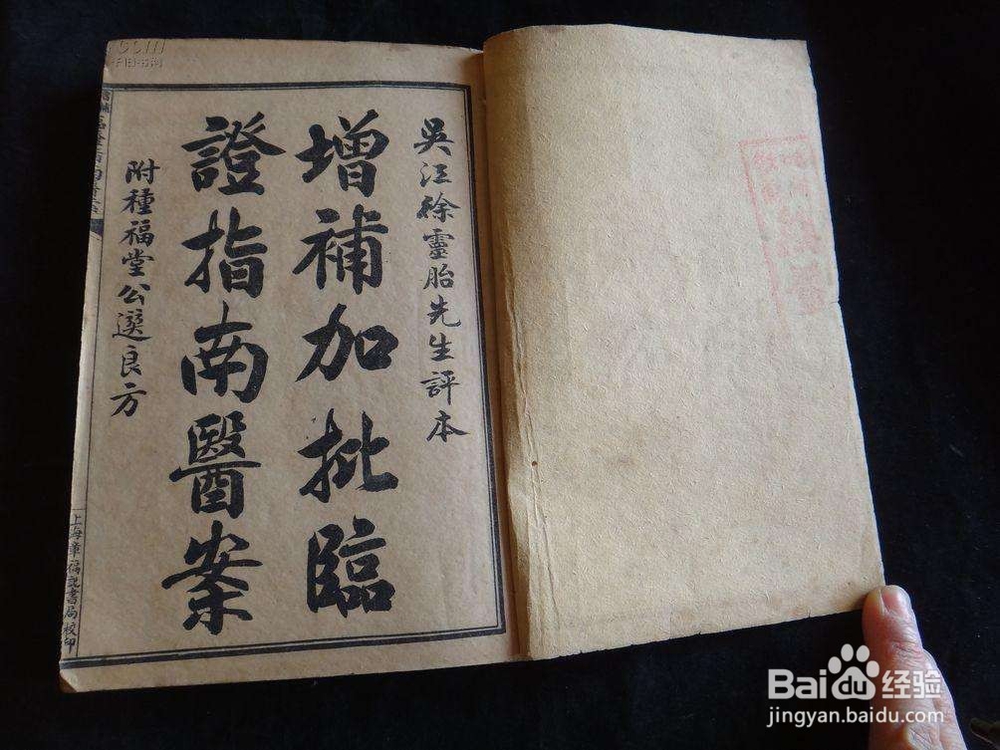 吳江徐靈胎先生評本
增補加批臨
證指南醫案
附種福堂公選良方
上海章福記書局校印
Baidu经验
jingyan.baidu.com